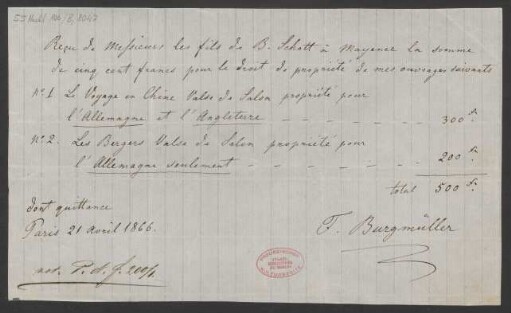 Reçu de Messieurs les fils de B. Schott à Mayence la somme
de cinq cent francs pour le droit de propriété de mes ouvrages suivants
No. 1. Le Voyage en Chine Valse de Salon propriété pour
l'Allemagne et l'Angleterre — — — — — — 300 fr.
No. 2. Les Bergers Valse de Salon propriété pour
l'Allemagne seulement — — — — — — 200 fr.
total 500 fr.
dont quittance
Paris 21 Avril 1866.
F. Burgmüller